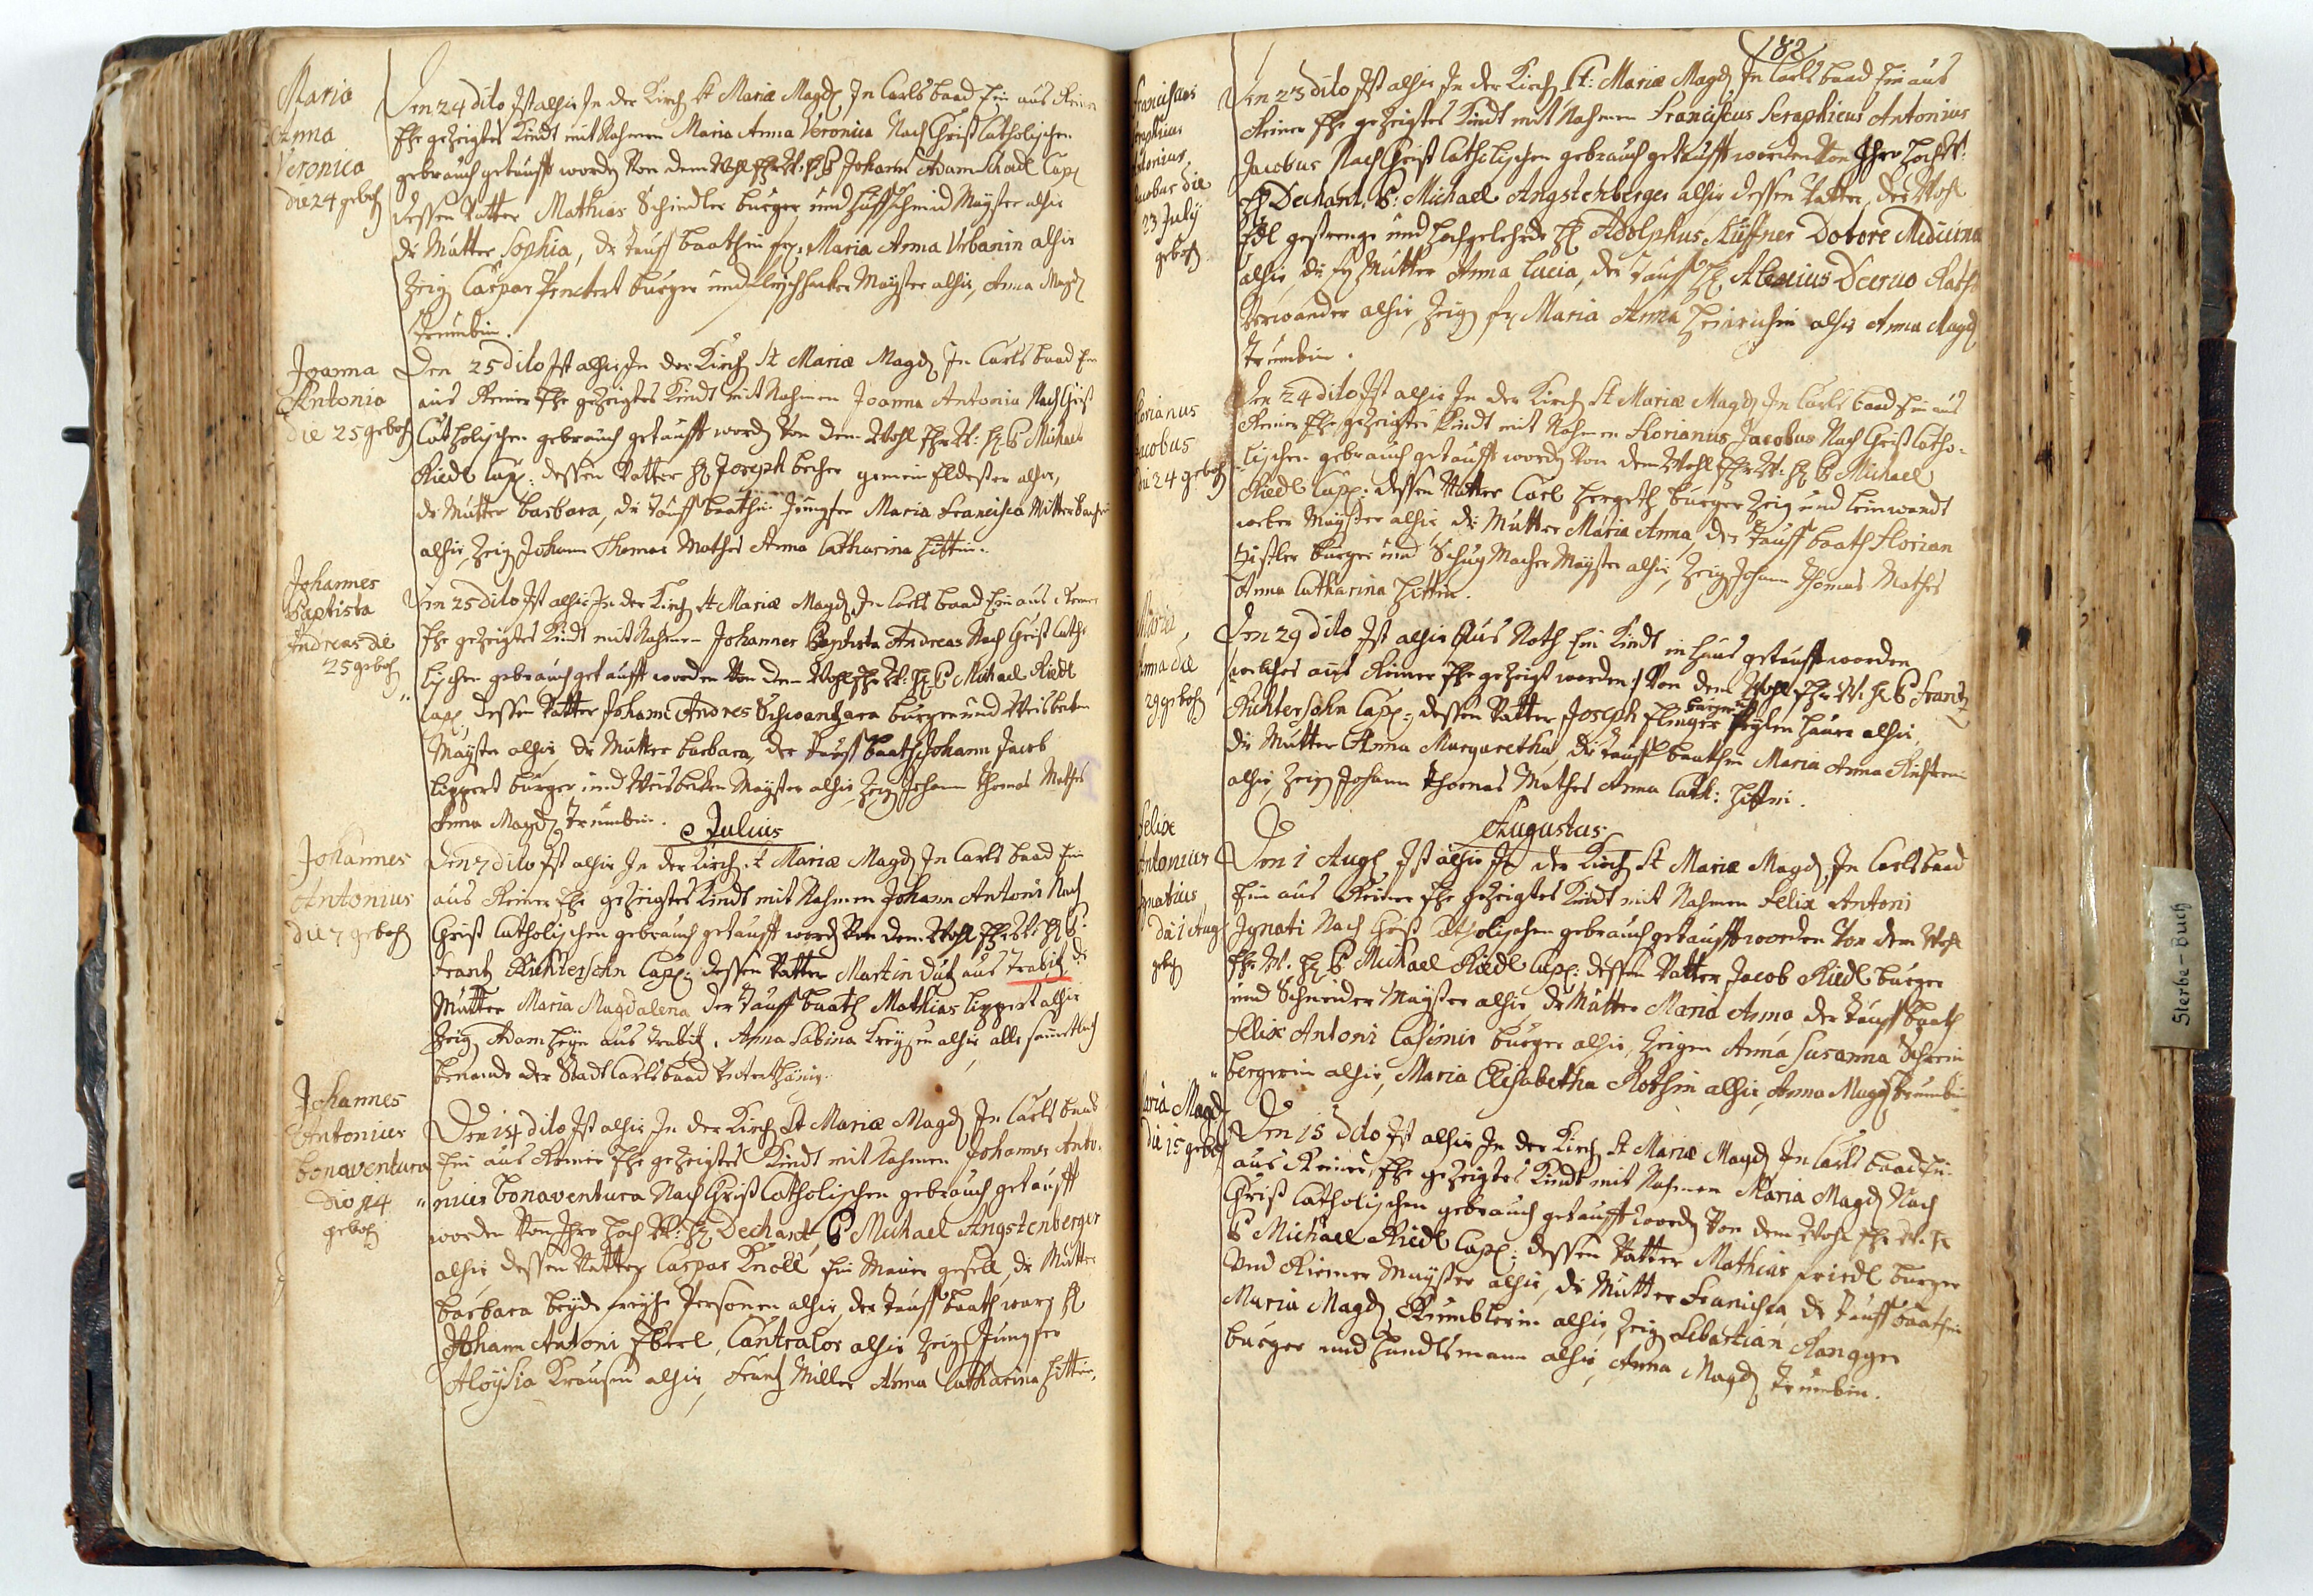 Maria
Anna
Veronica
die 24 geboh
Den 24 dito Ist alhir In der Kirch St Mariæ Magd In Carlsbaad Ein aus Reiner
Ehe gezeigtes Kindt mit Nahmen Maria Anna Veronica Nach Christ Catholischen
gebrauch getaufft word Von dem Wohl Ehr W: H P Johann Adam Schadl Cap
dessen Vatter Mathias Schindler burger und Huffschmid Mayster alhir
die Mutter Sophia, die tauff baathin fr: Maria Anna Urbanin alhir
Zeig Caspar burger und fleischhacker Mayster alhir, Anna Magd
Trumbin.
Joanna
Antonia
die 25 geboh
Den 25 dito Ist alhir In der Kirch St Mariæ Magd In Carlsbaad Ein
aus Reiner Ehe gezeigtes Kindt mit Nahmen Joanna Antonia Nach Christ
Catholischen gebrauch getaufft word Von dem Wohl Ehr W: H P Michael
Riedl Cap: dessen Vatter H Joseph becher gemein Eldester alhir,
die Mutter barbara, die Tauff baathin Jungfer Maria Francisca Mitterbacher
alhir, Zeig Johann Thomas Mathes Anna Catharina Hittin.
Johannes
Baptista
Andreas de
25 geboh
Den 25 dito Ist alhir In der Kirch St Mariæ Magd In Carlsbaad Ein aus Reiner
Ehe gezeigtes Kindt mit Nahmen Johannes Baptista Andreas Nach Christ Catho
lischen gebrauch getaufft worden Von dem Wohl Ehr W: H P Michael Riedl
Cap, dessen Vatter Johann Andres Schwantzara burger und Weisbeken
Mayster alhir, die Mutter barbara, der tauff baath Johann Jacob
Lippert burger und Weisbeken Mayster alhir, Zeig Johann Thomas Mathes
Anna Magd Trumbin.
Julius
Johannes
Antonius
die 7 geboh
Den 7 dito Ist alhir In der Kirch St Mariæ Magd In Carlsbaad Ein
aus Reiner Ehe gezeigtes Kindt mit Nahmen Johann Antoni Nach
Christ Catholischen gebrauch getaufft word Von dem Wohl Ehr W: H P:
Frantz Richtersohn Cap: dessen Vatter Martin Dutz aus Trabitz die
Mutter Maria Magdalena der Tauff baath Mathias Lippert alhir
Zeig Adam Heyn aus Trabitz, Anna Sabina alhir, alle samentlich
benande der Stadt Carlsbaad Unterthänig.
Johannes
Antonius
bonaventura
die 14
geboh
Den 14 dito Ist alhir In der Kirch St Mariæ Magd In Carlsbaad
Ein aus Reiner Ehe gezeigtes Kindt mit Nahmen Johannes Anto-
nius bonaventura Nach Christ Catholischen gebrauch getaufft
worden Von Ihro Hoch W: H Dechant P Michael Angstenberger
alhir, dessen Vatter Caspar Knoll Ein Maurer gesell, die Mutter
barbara beyde freyhe Personen alhir, der Tauff baath ward H
Johann Antoni Eberl, Cantralor alhir Zeig Jungfer
Aloysia Krausin alhir, Frantz Miller Anna Catharina Hittin.
182
Franciscus
Seraphicus
Antonius
Jacobus die
23 July
geboh
Den 23 dito Ist alhir In der Kirch St: Mariæ Magd In Carlsbaad Ein aus
Reiner Ehe gezeigtes Kindt mit Nahmen Franciscus Seraphicus Antonius
Jacobus Nach Christ Catholischen gebrauch getaufft worden Von Ihro Hoch W:
H Dechant. P: Michael Angstenberger alhir dessen Vatter, der Wohl
Edl gestrenge und Hochgelehrde H Adolphus Küffner Dotore Medicinæ
alhir, die fr Mutter Anna Lucia, der tauff H Alexius Rath
Verwander alhir, Zeig fr Maria Anna Heinrichin alhir Anna Magd
Trumbin.
Florianus
Jacobus
die 24 geboh
Den 24 dito Ist alhir In der Kirch St Mariæ Magd In Carlsbaad Ein aus
Reiner Ehe gezeigtes Kindt mit Nahmen Florianus Jacobus Nach Christ Catho-
lischen gebrauch getaufft word Von dem Wohl Ehr W: H P Michael
Riedl Cap: dessen Vatter Carl Hergeth burger Zeig und Leinwandt
weber Mayster alhir die Mutter Maria Anna, der Tauff baath Florian
burger und Schug Macher Mayster alhir, Zeig Johann Thomas Mathes
Anna Catharina Hittin.
Maria
Anna die
29 geboh
Den 29 dito Ist alhir Aus Noth Ein Kindt in Haus getaufft worden
welches aus Reiner Ehe gezeigt worden Von dem Wohl Ehr W: H P Frantz
Richtersohn Cap: dessen Vatter Joseph Elinger burger alhir,
die Mutter Anna Margaretha, die tauff baathin Maria Anna
alhir, Zeig Johann Thomas Mathes Anna Cath: Hittin.
Augustus.
Felix
Antonius
Ignatius
die 1 Aug
geboh
Den 1 Aug Ist alhir In der Kirch St Mariæ Magd In Carlsbaad
Ein aus Reiner Ehe gezeigtes Kindt mit Nahmen Felix Antoni
Ignati Nach Christ Catholischen gebrauch getaufft worden Von dem Wohl
Ehr W: H P Michael Riedl Cap: dessen Vatter Jacob Riedl burger
und Schneider Mayster alhir, die Mutter Maria Anna der Tauff baath
Felix Antoni Casimir burger alhir, Zeigen Anna Susanna
bergerin alhir, Maria Elisabetha Rothin alhir, Anna Magd Trumbin
Maria Magd
die 15 geboh
Den 15 Dito Ist alhir In der Kirch St Mariæ Magd In Carlsbaad Ein
aus Reiner Ehe gezeigtes Kindt mit Nahmen Maria Magd Nach
Christ Catholischen gebrauch getaufft word Von dem Wohl Ehr W: H
P Michael Riedl Cap: dessen Vatter Mathias Friedl burger
Und Riemer Mayster alhir, die Mutter Francisca, die Tauff baathin
Maria Magd Rumblerin alhir, Zeig Sebastian Rangger
burger und Handlsmann alhir, Anna Magd Trumbin.
Sterbe-Buch